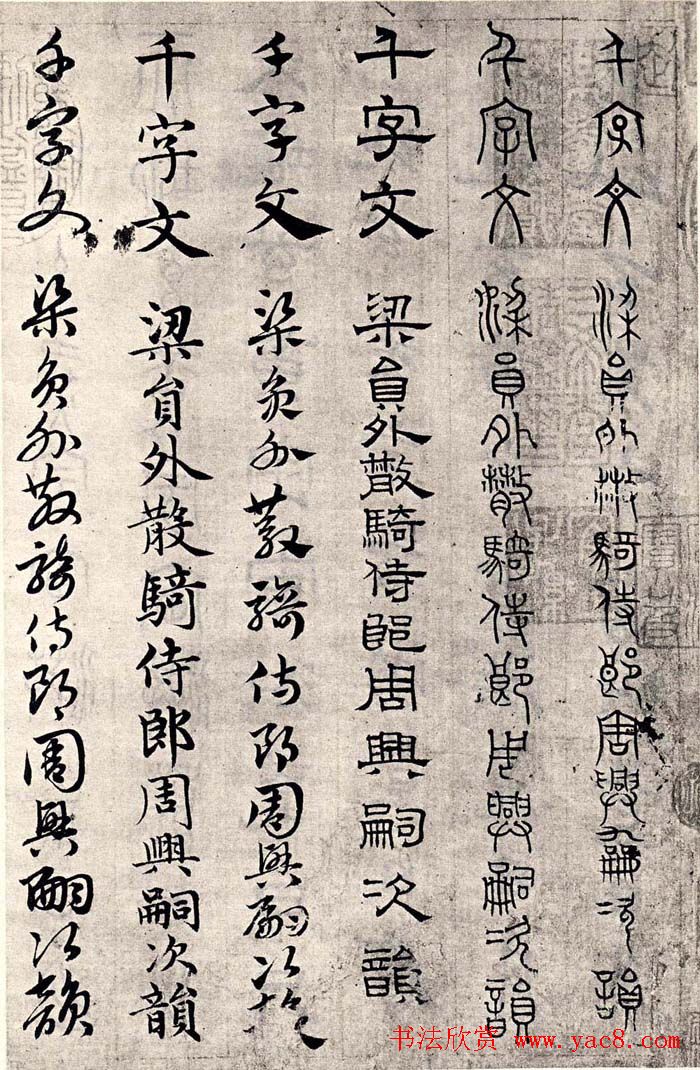 千字文 梁員外散騎侍郎周興嗣次韻
千字文 梁員外散騎侍郎周興嗣次韻
千字文 梁員外散騎侍郎周興嗣次韻
千字文 梁員外散騎侍郎周興嗣次韻
千字文 梁員外散騎侍郎周興嗣次韻
千字文 梁員外散騎侍郎周興嗣次韻
书法欣赏 www.yac8.com